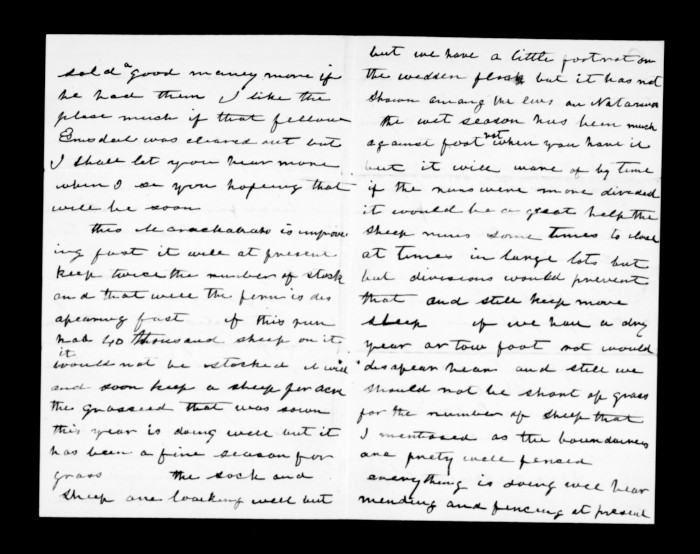 sold a good maney more if
he had them I like the
plase much if that fellow
was cleared out but
I shall let you hear more
when I se you hopeing that
will be soon
this Maraekakaho is improve
ing fast it will at present
keep twice the number of stock
and that well the fern is des
apearing fast if this run
had 40 thousand sheep on it
it would not be stocked it will
and soon keep a sheep per acre
the grasseed that was sown
this year is doing well but it
has been a fine season for
grass the sock and
sheep are loacking well but
but we have a little footrot on
the wedden flock but it has not
shown among the ews on
the wet season has been much
against foot rot when you have it
but it will ware of by time
if the runs were more divided
it would be a great help the
sheep runs some times to close
at times in large lots but
but divisions would prevent
that and still keep more
sheep if we had a dry
year or tow foot rot would
disapear hear and still we
should not be short of grass
for the number of sheep that
I mentosed as the boundaries
are prety well fenced
everything is doing well hear
mending and fencing at present